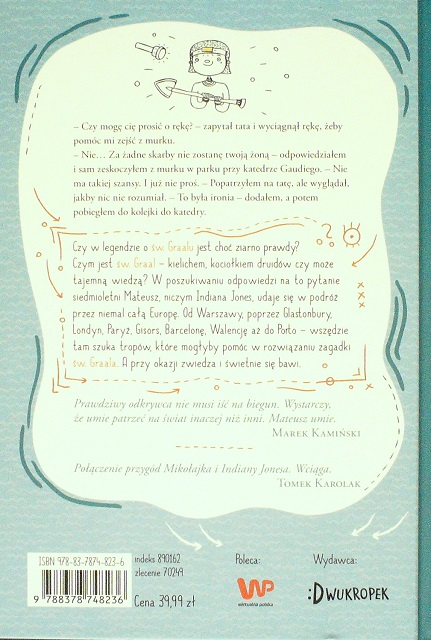 – Czy mogę cię prosić o rękę? – zapytał tata i wyciągnął rękę, żeby
pomóc mi zejść z murku.
– Nie... Za żadne skarby nie zostanę twoją żoną – odpowiedziałem
i sam zeskoczyłem z murku w parku przy katedrze Gaudiego. – Nie
ma takiej szansy. I już nie proś. – Popatrzyłem na tatę, ale wyglądał,
jakby nic nie rozumiał. – To była ironia – dodałem, a potem
pobiegłem do kolejki do katedry.
Czy w legendzie o św. Graalu jest choć ziarno prawdy?
Czym jest św. Graal – kielichem, kociołkiem druidów czy może
tajemną wiedzą? W poszukiwaniu odpowiedzi na to pytanie
siedmioletni Mateusz, niczym Indiana Jones, udaje się w podróż
przez niemal całą Europę. Od Warszawy, poprzez Glastonbury,
Londyn, Paryż, Gisors, Barcelonę, Walencję aż do Porto – wszędzie
tam szuka tropów, które mogłyby pomóc w rozwiązaniu zagadki
św. Graala. A przy okazji zwiedza i świetnie się bawi.
Prawdziwy odkrywca nie musi iść na biegun. Wystarczy,
że umie patrzeć na świat inaczej niż inni. Mateusz umie.
Marek Kamiński
Połączenie przygód Mikołajka i Indiany Jonesa. Wciąga.
Tomek Karolak
ISBN 978-83-7874-823-6
9 788378 748236
indeks 890162
zlecenie 70249
Cena 39,99 zł
Poleca:
WP
wirtualna polska
Wydawca:
:DWUKROPEK